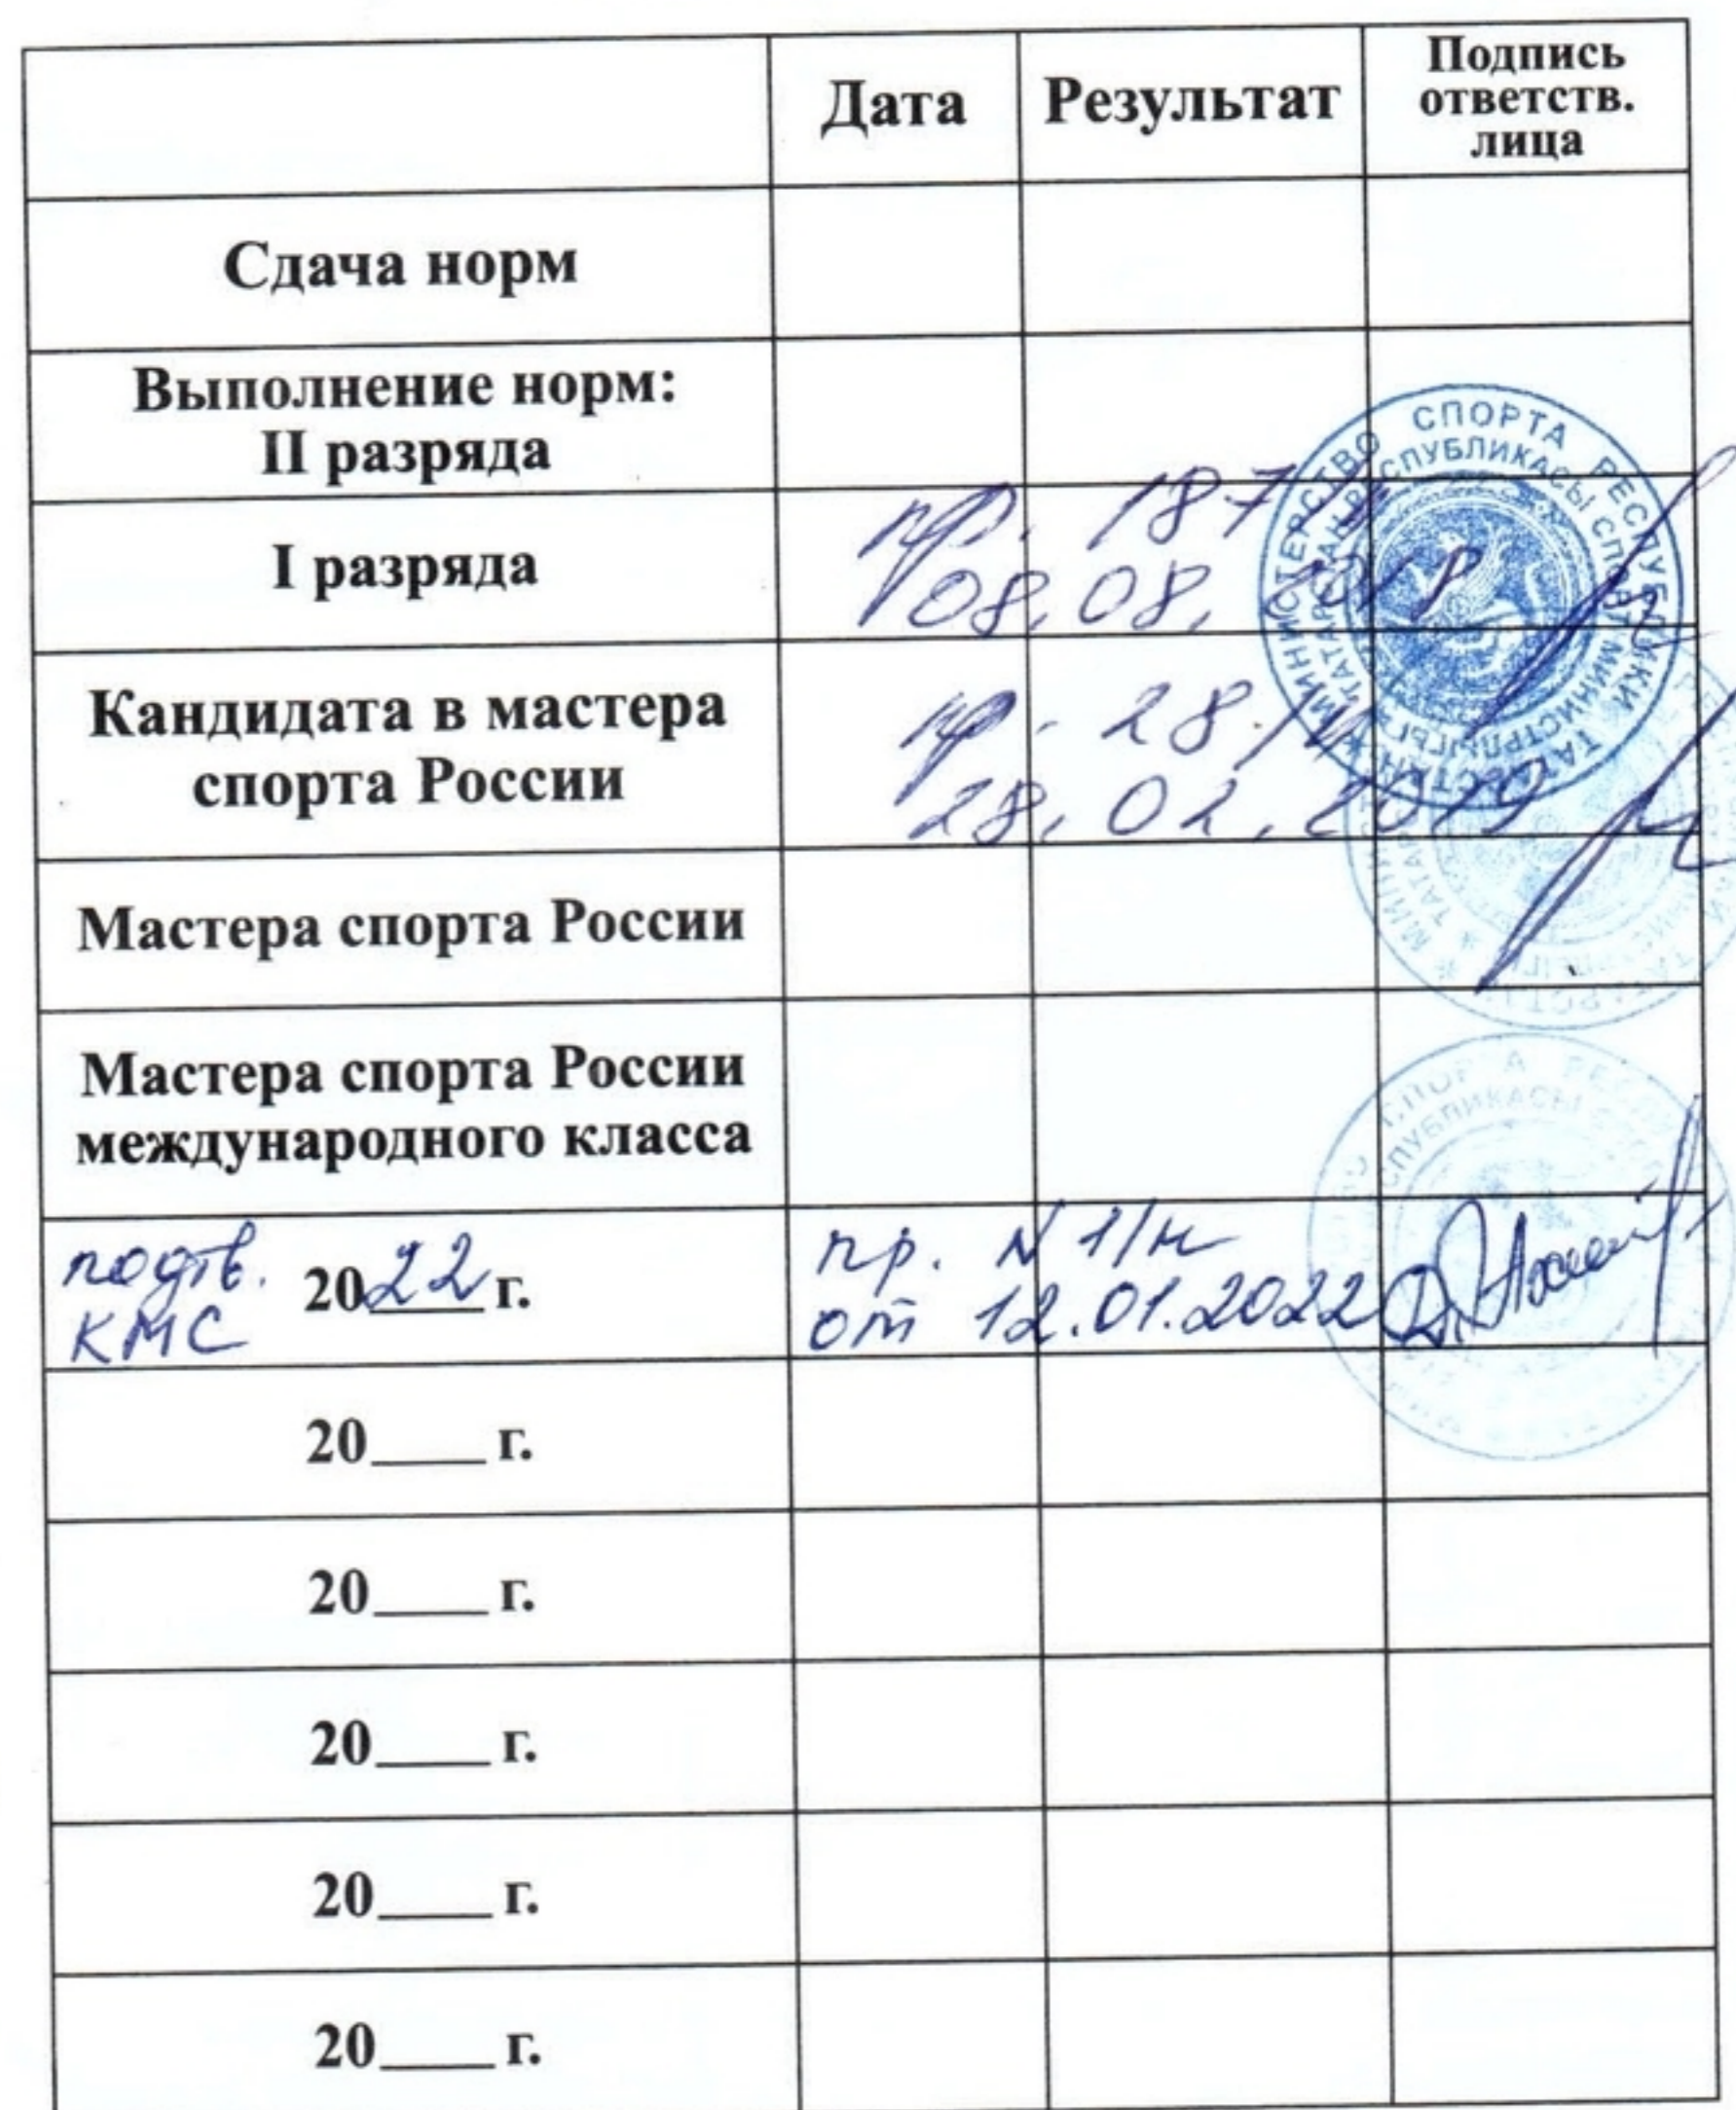 Дата Результат Подпись
ответств.
лица
Сдача норм
Выполнение норм:
II разряда
I разряда
пр. 187
08.08.2018
Кандидата в мастера
спорта России
пр. 28
28.02.2019
Мастера спорта России
Мастера спорта России
международного класса
подтв.
КМС
2022 г.
пр. N 1/н
от 12.01.2022
20____ г.
20____ г.
20____ г.
20____ г.
20____ г.
МИНИСТЕРСТВО СПОРТА РЕСПУБЛИКИ ТАТАРСТАН
ТАТАРСТАН РЕСПУБЛИКАСЫ СПОРТ МИНИСТРЛЫГЫ